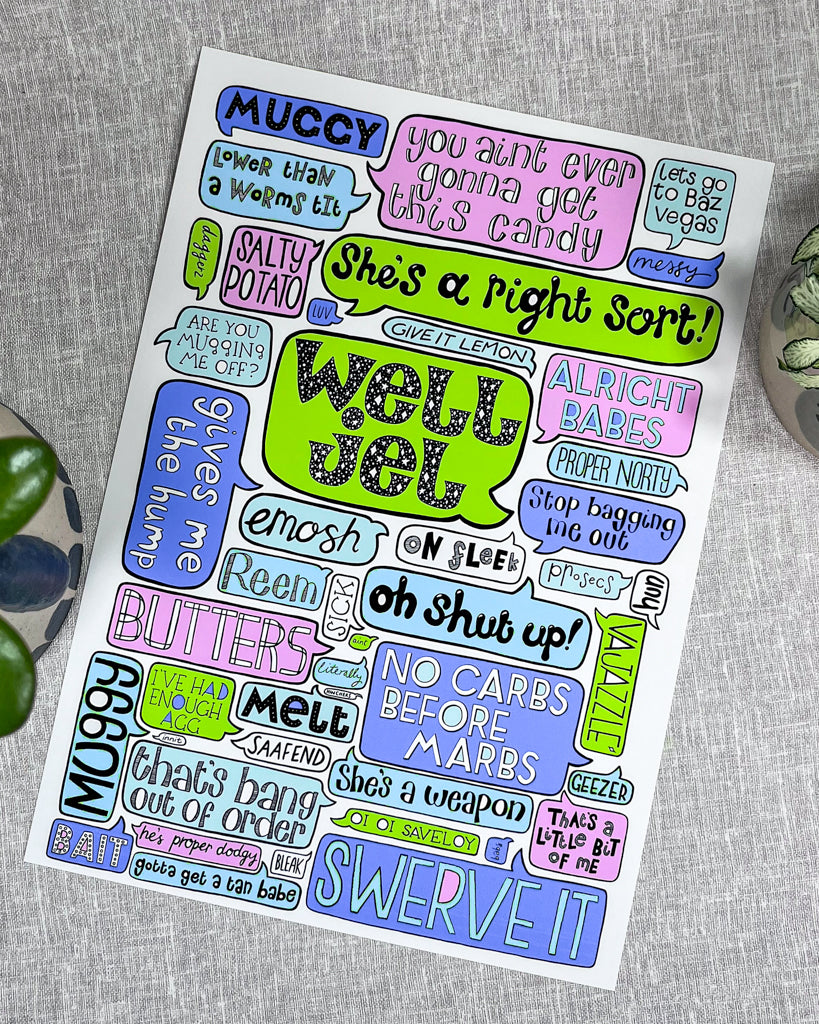 MUCCY
you aint ever
gonna get
this candy
LOWER THAN
a WORMS tIt
lets go
to BaZ
VEGAS
messy
daggerz
SALTY
POTATO
LUV
She's a right sort!
GIVE IT LEMON
ARE YOU
MUGGING
ME OFF?
well
jel
ALRIGHT
BABES
PROPER NORTY
gives me
the hump
Stop bagging
me out
emosh
ON fLEEK
prosecs
hun
Reem
SICK
oh shut up!
BUTTERS
aint
literally
VAJAZZLE
MUGGY
I'VE HAD
ENOUGH
AGG
melt
NO CARBS
BEFORE
MARBS
innit
SAAFEND
GEEZER
that's bang
out of order
She's a weapon
THAT'S a
LITTLE BIT
OF ME
OI OI SAVELOY
babs
BAIT
he's proper dodgy
BLEAK
gotta get a tan babe
SWERVE IT